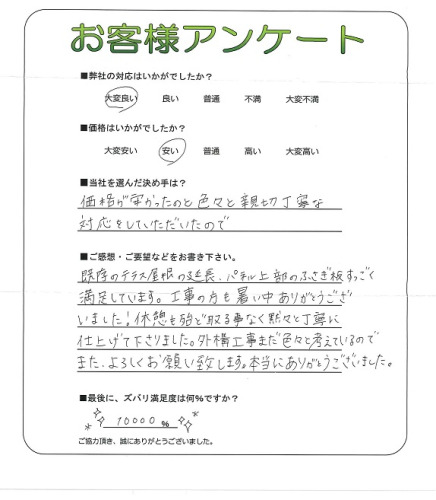 お客様アンケート
■弊社の対応はいかがでしたか？
大変良い 良い 普通 不満 大変不満
■価格はいかがでしたか？
大変安い 安い 普通 高い 大変高い
■当社を選んだ決め手は？
価格が安かったのと色々と親切丁寧な
対応をしていただいたので
■ご感想・ご要望などをお書き下さい。
既存のテラス屋根の延長、パネル上部のふさぎ板すっごく
満足しています。工事の方も暑い中ありがとうござ
いました！休憩も殆ど取る事なく黙々と丁寧に
仕上げて下さりました。外構工事まだ色々と考えているので
また、よろしくお願い致します。本当にありがとうございました。
■最後に、ズバリ満足度は何％ですか？
10000 ％
ご協力頂き、誠にありがとうございました。